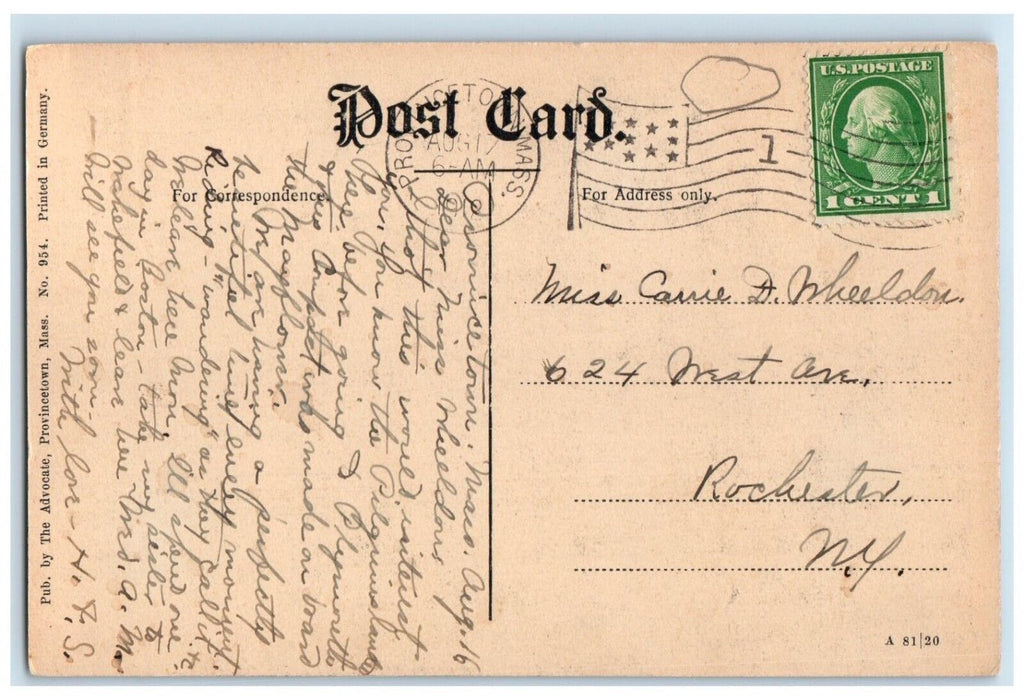 Post Card.
PROVINCETOWN, MASS.
AUG 17
6-AM
1
U.S. POSTAGE
1 CENT 1
For Correspondence.
For Address only.
Pub. by The Advocate, Provincetown, Mass. No. 954. Printed in Germany.
Provincetown, Mass. Aug. 16
Dear Miss Wheeldon:
I that this would interest
you. You know the Pilgrims landed
here before going to Plymouth
& the Compact was made on board
the Mayflower.
We are having a perfectly
beautiful time every moment.
Riding - "wandering" as they call it.
We leave here Mon. I'll spend one
day in Boston - take my sister to
Wakefield & leave here Wed. A.M.
Will see you soon -
With love - H. F. S.
Miss Carrie D. Wheeldon.
624 West Ave.,
Rochester,
N.Y.
A 81|20